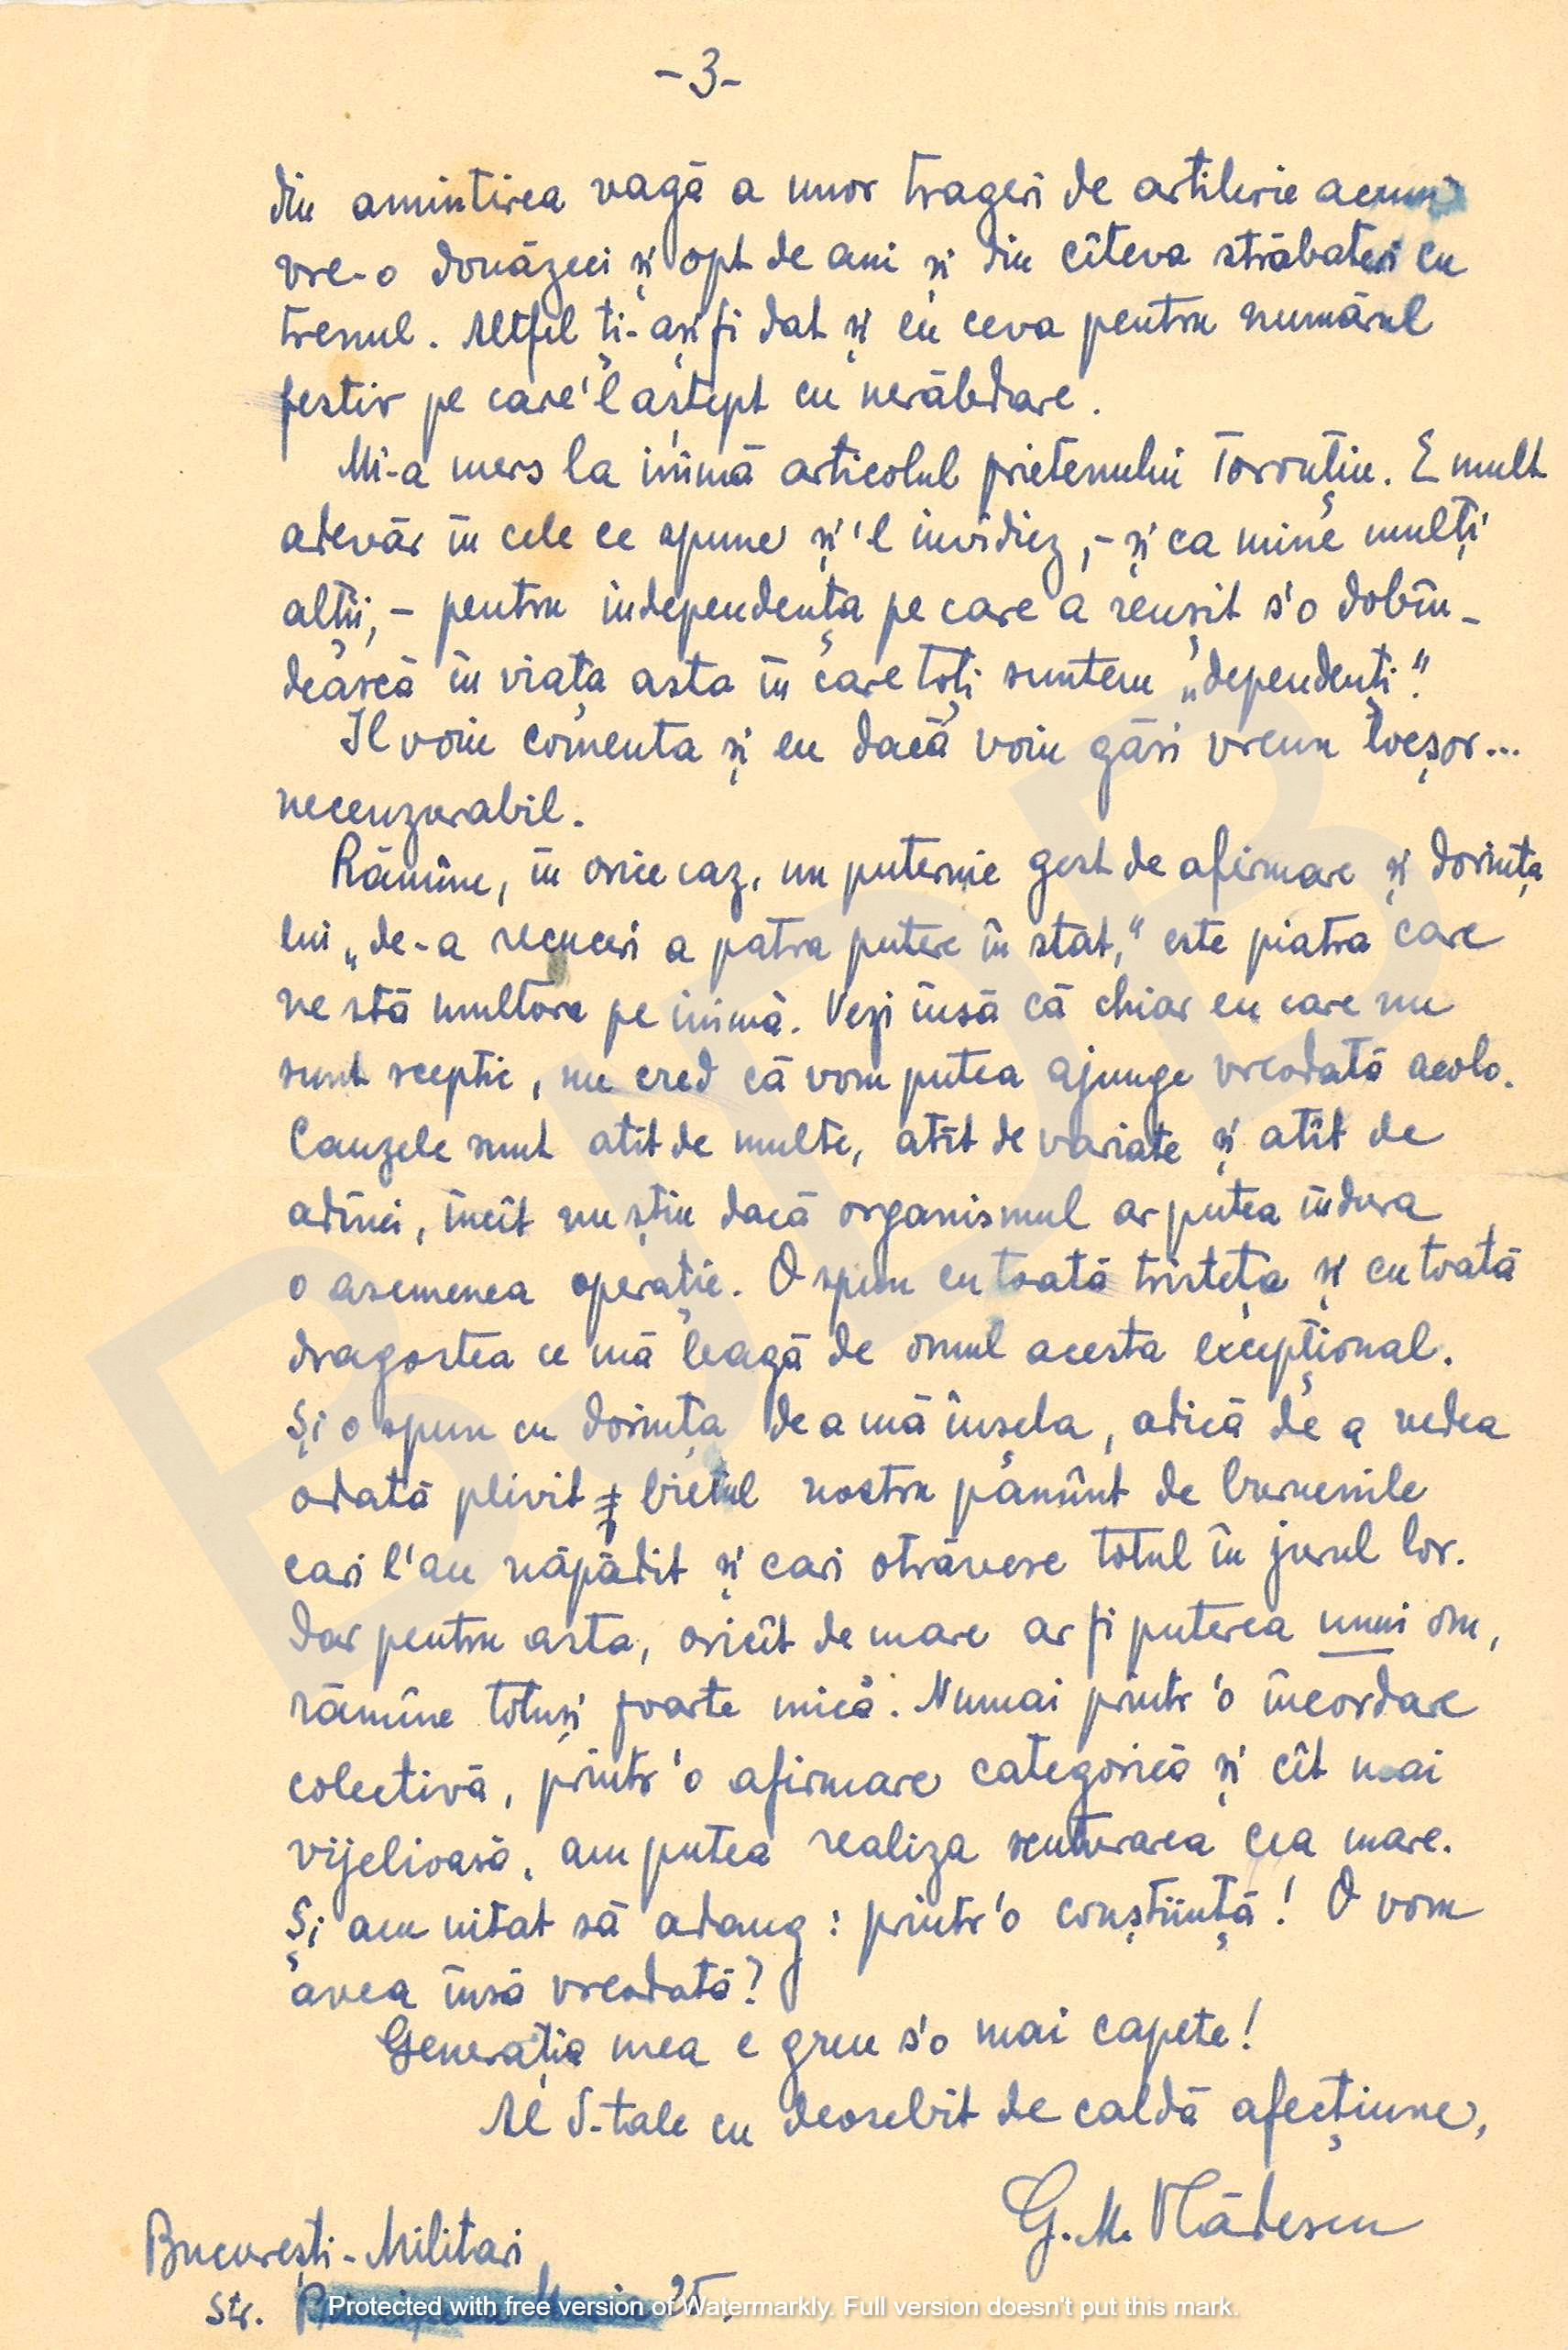 -3-
din amintirea vagă a unor trageri de artilerie acum
vre-o douăzeci și opt de ani și din cîteva străbateri cu
trenul. Altfel ți-ași fi dat și eu ceva pentru numărul
festiv pe care'l aștept cu nerăbdare.
Mi-a mers la inimă articolul prietenului Torouțiu. E mult
adevăr în cele ce spune și'l invidiez,- și ca mine mulți
alții,- pentru independența pe care a reușit s'o dobîn-
dească în viața asta în care toți suntem „dependenți".
Il voiu comenta și eu dacă voiu găsi vreun locșor...
necenzurabil.
Rămîne, în orice caz, un puternic gest de afirmare și dorința
lui „de-a recuceri a patra putere în stat," este piatra care
ne stă multora pe inimă. Vezi însă că chiar eu care nu
sunt sceptic, nu cred că vom putea ajunge vreodată acolo.
Cauzele sunt atît de multe, atît de variate și atît de
adînci, încît nu știu dacă organismul ar putea îndura
o asemenea operație. O spun cu toată tristețea și cu toată
dragostea ce mă leagă de omul acesta excepțional.
Și o spun cu dorința de a mă înșela, adică de a vedea
odată plivit bietul nostru pămînt de buruenile
cari l'au năpădit și cari otrăvesc totul în jurul lor.
Dar pentru asta, oricît de mare ar fi puterea unui om,
rămîne totuși foarte mică. Numai printr'o încordare
colectivă, printr'o afirmare categorică și cît mai
vijelioasă, am putea realiza scuturarea cea mare.
Și am uitat să adaug: printr'o conștiință! O vom
avea însă vreodată?
Generația mea e greu s'o mai capete!
Al D-tale cu deosebit de caldă afecțiune,
G. M. Vlădescu
București-Militari
Str. 25,
Protected with free version of Watermarkly. Full version doesn't put this mark.
BJDB